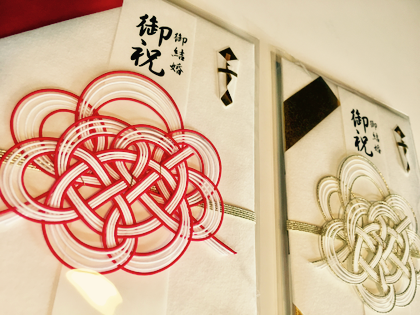 御結婚
御祝
御結婚
御祝